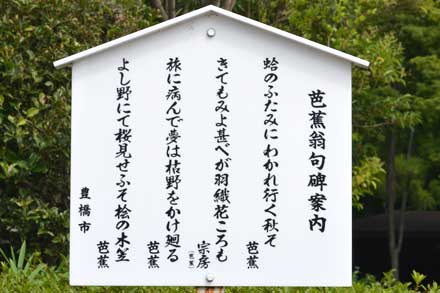 芭蕉翁句碑案内
蛤のふたみにわかれ行く秋そ
芭蕉
きてもみよ甚べが羽織花ころも
宗房
(芭蕉)
旅に病んで夢は枯野をかけ廻る
芭蕉
よし野にて桜見せふそ桧の木笠
芭蕉
豊橋市